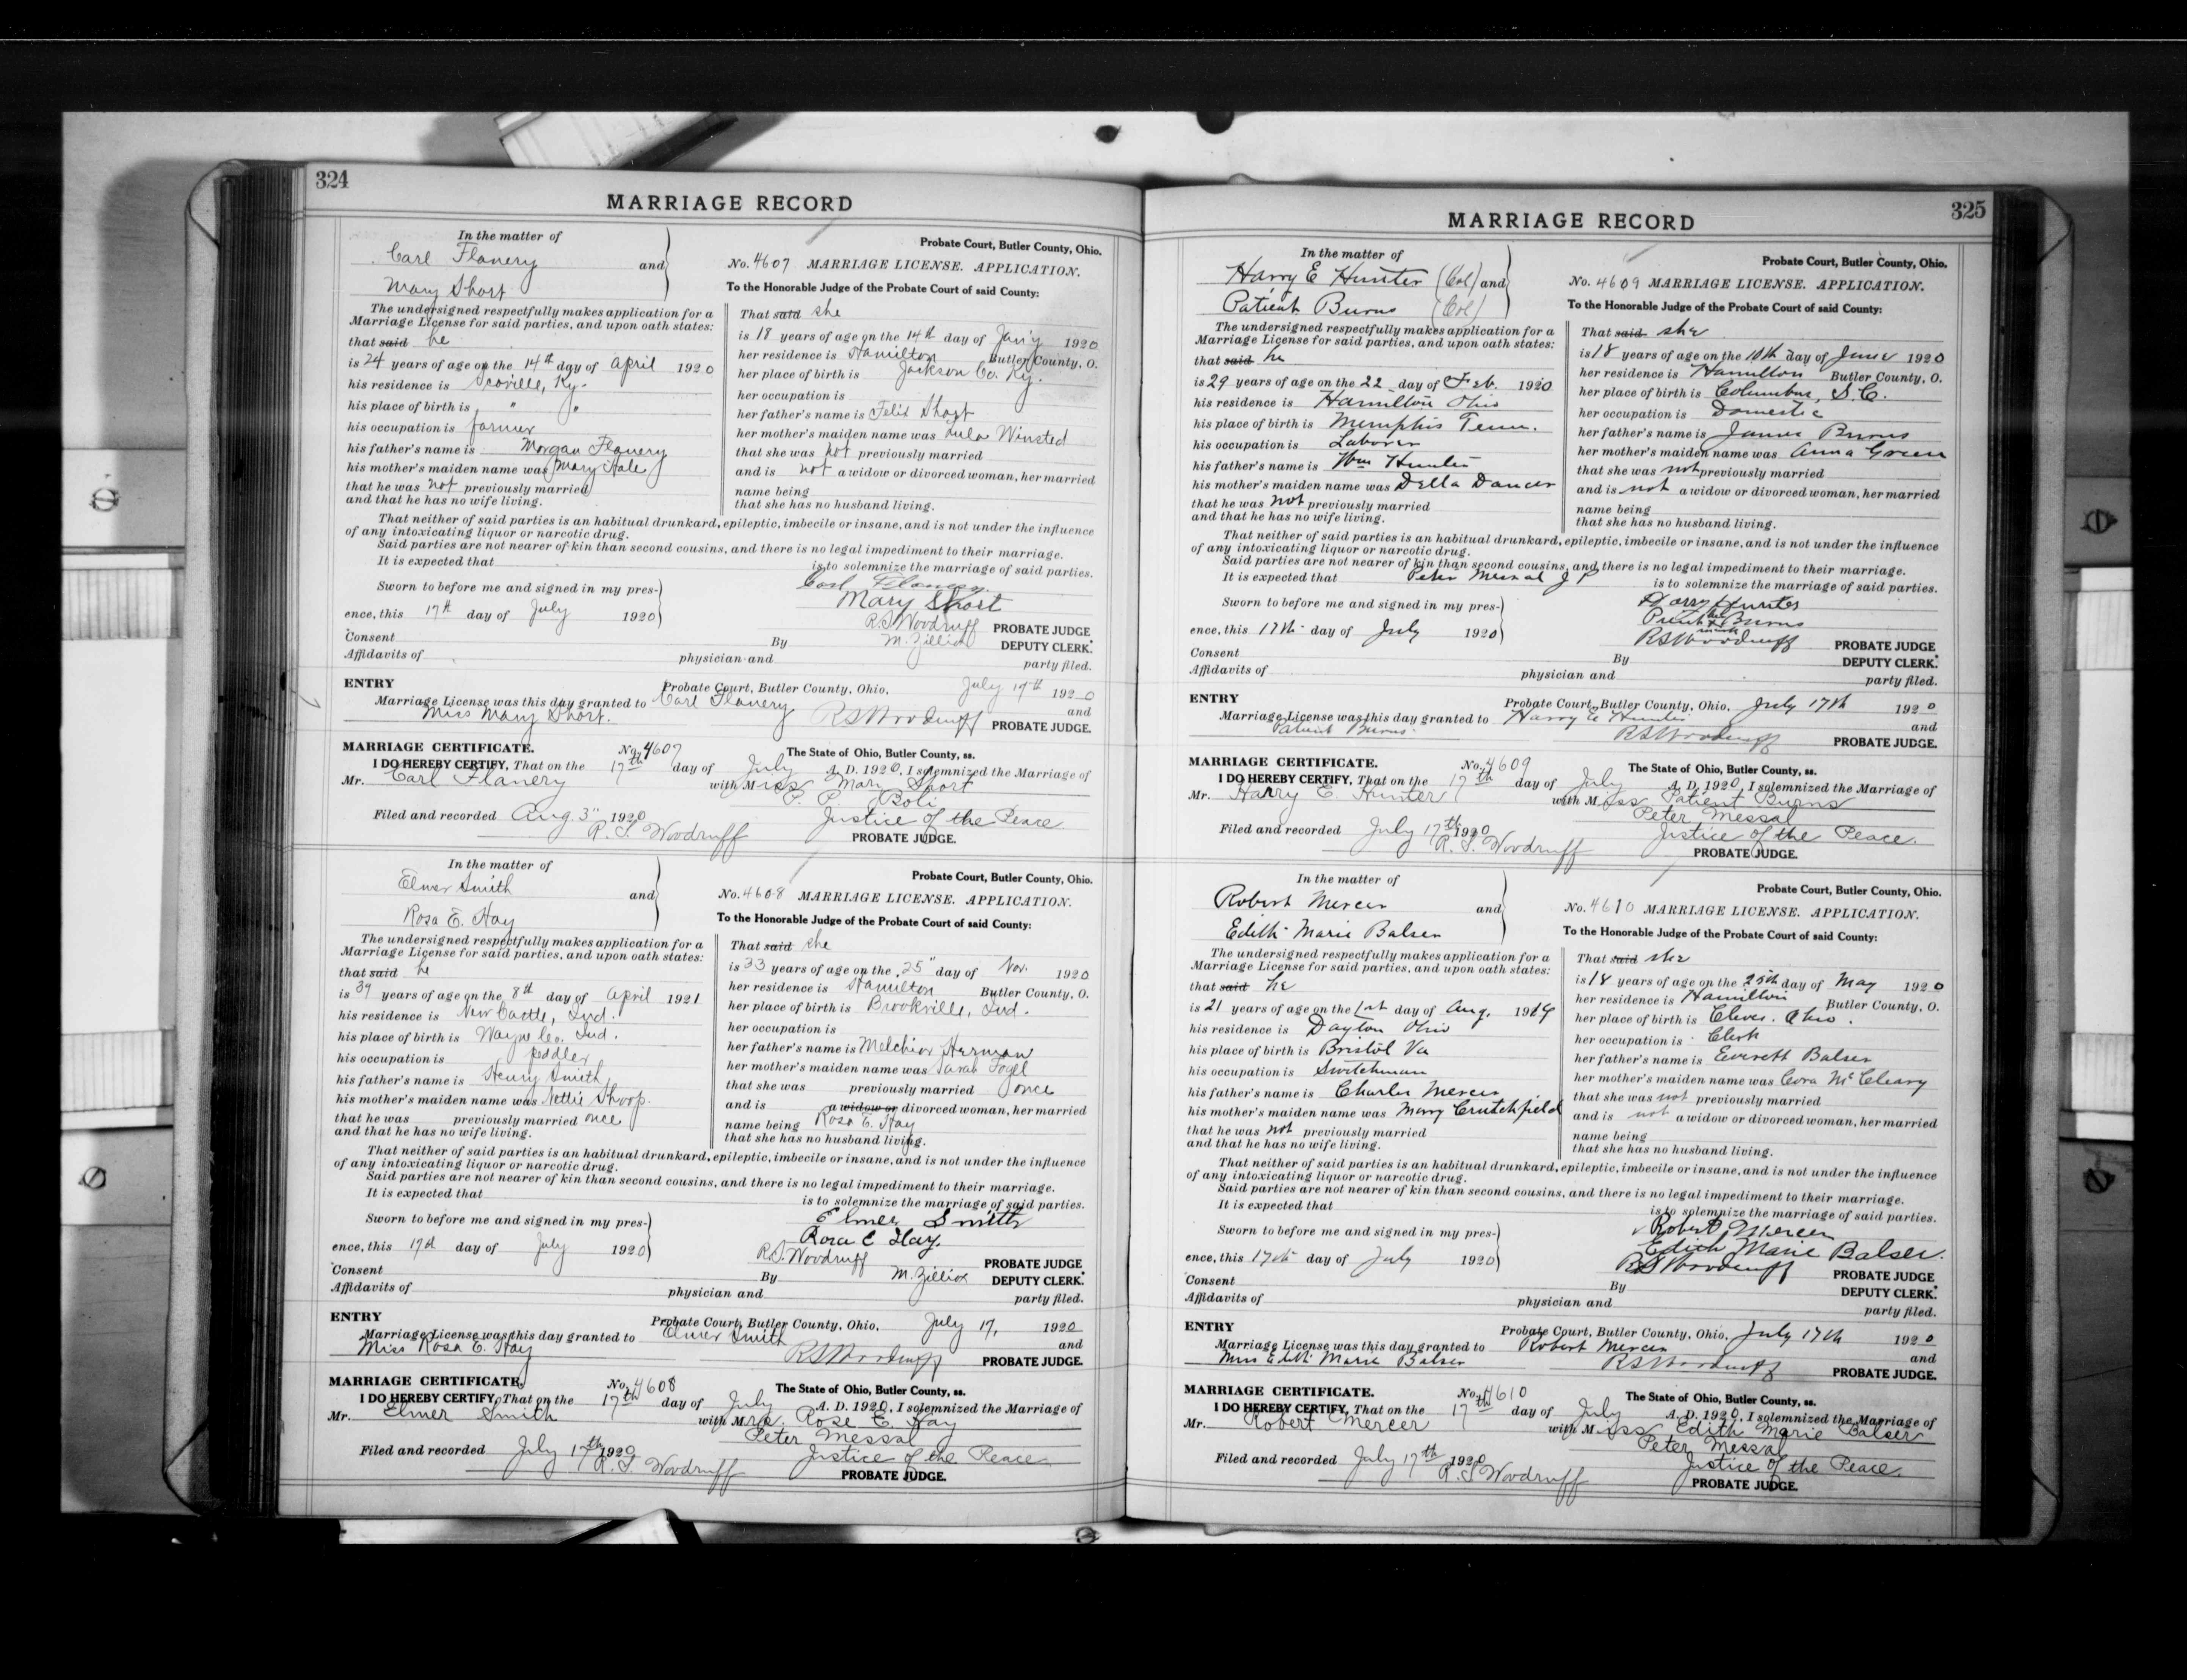 324
MARRIAGE RECORD
In the matter of
Carl Flanery and
Mary Short
The undersigned respectfully makes application for a
Marriage License for said parties, and upon oath states:
that said he
is 24 years of age on the 14th day of April 1920
his residence is Scoville, Ky.
his place of birth is " "
his occupation is farmer
his father's name is Morgan Flanery
his mother's maiden name was Mary Hale
that he was not previously married
and that he has no wife living.
Probate Court, Butler County, Ohio.
No. 4607 MARRIAGE LICENSE. APPLICATION.
To the Honorable Judge of the Probate Court of said County:
That said she
is 18 years of age on the 14th day of Jan'y 1920
her residence is Hamilton Butler County, O.
her place of birth is Jackson Co. Ky.
her occupation is
her father's name is Felix Short
her mother's maiden name was Lula Winsted
that she was not previously married
and is not a widow or divorced woman, her married
name being
that she has no husband living.
That neither of said parties is an habitual drunkard, epileptic, imbecile or insane, and is not under the influence
of any intoxicating liquor or narcotic drug.
Said parties are not nearer of kin than second cousins, and there is no legal impediment to their marriage.
It is expected that is to solemnize the marriage of said parties.
Carl Flanery
Sworn to before me and signed in my pres-
Mary Short
ence, this 17th day of July 1920
R.S. Woodruff PROBATE JUDGE
Consent By M. Zilliox DEPUTY CLERK.
Affidavits of physician and party filed.
ENTRY Probate Court, Butler County, Ohio, July 17th 1920
Marriage License was this day granted to Carl Flanery and
Miss Mary Short. RS Woodruff PROBATE JUDGE.
MARRIAGE CERTIFICATE. No. 4607 The State of Ohio, Butler County, ss.
I DO HEREBY CERTIFY, That on the 17th day of July A. D. 1920, I solemnized the Marriage of
Mr. Carl Flanery with Miss Mary Short
P. P. Boli
Filed and recorded Aug 3" 1920 Justice of the Peace
R. S. Woodruff PROBATE JUDGE.
In the matter of
Elmer Smith and
Rosa E. Hay
The undersigned respectfully makes application for a
Marriage License for said parties, and upon oath states:
that said he
is 39 years of age on the 8th day of April 1921
his residence is New Castle, Ind.
his place of birth is Wayne Co. Ind.
his occupation is peddler
his father's name is Henry Smith
his mother's maiden name was Nettie Shoop.
that he was previously married once
and that he has no wife living.
Probate Court, Butler County, Ohio.
No. 4608 MARRIAGE LICENSE. APPLICATION.
To the Honorable Judge of the Probate Court of said County:
That said she
is 33 years of age on the 25" day of Nov. 1920
her residence is Hamilton Butler County, O.
her place of birth is Brookville, Ind.
her occupation is
her father's name is Melchior Herman
her mother's maiden name was Sarah Fogel
that she was previously married once
and is a widow or divorced woman, her married
name being Rosa E. Hay
that she has no husband living.
That neither of said parties is an habitual drunkard, epileptic, imbecile or insane, and is not under the influence
of any intoxicating liquor or narcotic drug.
Said parties are not nearer of kin than second cousins, and there is no legal impediment to their marriage.
It is expected that is to solemnize the marriage of said parties.
Elmer Smith
Sworn to before me and signed in my pres-
Rosa E Hay.
ence, this 17th day of July 1920
R.S. Woodruff PROBATE JUDGE
Consent By M. Zilliox DEPUTY CLERK.
Affidavits of physician and party filed.
ENTRY Probate Court, Butler County, Ohio, July 17, 1920
Marriage License was this day granted to Elmer Smith and
Miss Rosa E. Hay RS Woodruff PROBATE JUDGE.
MARRIAGE CERTIFICATE. No. 4608 The State of Ohio, Butler County, ss.
I DO HEREBY CERTIFY, That on the 17th day of July A. D. 1920, I solemnized the Marriage of
Mr. Elmer Smith with Mrs. Rose E. Hay
Peter Messal
Filed and recorded July 17th 1920 Justice of the Peace
R. S. Woodruff PROBATE JUDGE.
325
MARRIAGE RECORD
In the matter of
Harry E Hunter (Col) and
Patient Burns (Col)
The undersigned respectfully makes application for a
Marriage License for said parties, and upon oath states:
that said he
is 29 years of age on the 22 day of Feb. 1920
his residence is Hamilton Ohio
his place of birth is Memphis Tenn.
his occupation is Laborer
his father's name is Wm Hunter
his mother's maiden name was Della Dancer
that he was not previously married
and that he has no wife living.
Probate Court, Butler County, Ohio.
No. 4609 MARRIAGE LICENSE. APPLICATION.
To the Honorable Judge of the Probate Court of said County:
That said she
is 18 years of age on the 10th day of June 1920
her residence is Hamilton Butler County, O.
her place of birth is Columbus, S.C.
her occupation is Domestic
her father's name is James Burns
her mother's maiden name was Anna Green
that she was not previously married
and is not a widow or divorced woman, her married
name being
that she has no husband living.
That neither of said parties is an habitual drunkard, epileptic, imbecile or insane, and is not under the influence
of any intoxicating liquor or narcotic drug.
Said parties are not nearer of kin than second cousins, and there is no legal impediment to their marriage.
It is expected that Peter Messal J P is to solemnize the marriage of said parties.
Harry Hunter
Sworn to before me and signed in my pres-
her
Patient x Burns
mark
ence, this 17th day of July 1920
RS Woodruff PROBATE JUDGE
Consent By DEPUTY CLERK.
Affidavits of physician and party filed.
ENTRY Probate Court, Butler County, Ohio, July 17th 1920
Marriage License was this day granted to Harry E Hunter and
Patient Burns RS Woodruff PROBATE JUDGE.
MARRIAGE CERTIFICATE. No. 4609 The State of Ohio, Butler County, ss.
I DO HEREBY CERTIFY, That on the 17th day of July A. D. 1920, I solemnized the Marriage of
Mr. Harry E. Hunter with Miss Patient Burns
Peter Messal
Filed and recorded July 17th 1920 Justice of the Peace.
R. S. Woodruff PROBATE JUDGE.
In the matter of
Robert Mercer and
Edith Marie Balser
The undersigned respectfully makes application for a
Marriage License for said parties, and upon oath states:
that said he
is 21 years of age on the 1st day of Aug. 1919
his residence is Dayton Ohio
his place of birth is Bristol Va
his occupation is Switchman
his father's name is Charles Mercer
his mother's maiden name was Mary Crutchfield
that he was not previously married
and that he has no wife living.
Probate Court, Butler County, Ohio.
No. 4610 MARRIAGE LICENSE. APPLICATION.
To the Honorable Judge of the Probate Court of said County:
That said she
is 18 years of age on the 25th day of May 1920
her residence is Hamilton Butler County, O.
her place of birth is Cleves. Ohio.
her occupation is Clerk
her father's name is Everett Balser
her mother's maiden name was Cora McCleary
that she was not previously married
and is not a widow or divorced woman, her married
name being
that she has no husband living.
That neither of said parties is an habitual drunkard, epileptic, imbecile or insane, and is not under the influence
of any intoxicating liquor or narcotic drug.
Said parties are not nearer of kin than second cousins, and there is no legal impediment to their marriage.
It is expected that is to solemnize the marriage of said parties.
Robert Mercer
Sworn to before me and signed in my pres-
Edith Marie Balser.
ence, this 17th day of July 1920
RS Woodruff PROBATE JUDGE
Consent By DEPUTY CLERK.
Affidavits of physician and party filed.
ENTRY Probate Court, Butler County, Ohio, July 17th 1920
Marriage License was this day granted to Robert Mercer and
Miss Edith Marie Balser RS Woodruff PROBATE JUDGE.
MARRIAGE CERTIFICATE. No. 4610 The State of Ohio, Butler County, ss.
I DO HEREBY CERTIFY, That on the 17th day of July A. D. 1920, I solemnized the Marriage of
Mr. Robert Mercer with Miss Edith Marie Balser
Peter Messal
Filed and recorded July 17th 1920 Justice of the Peace.
R. S Woodruff PROBATE JUDGE.